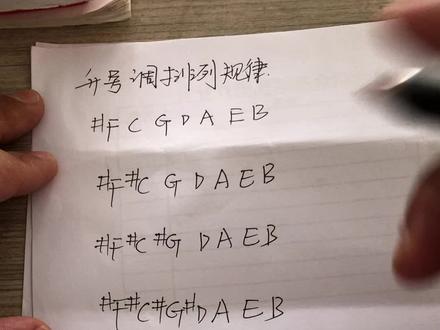 升号调排列规律
#F C G D A E B
#F #C G D A E B
#F #C #G D A E B
#F #C #G #D A E B